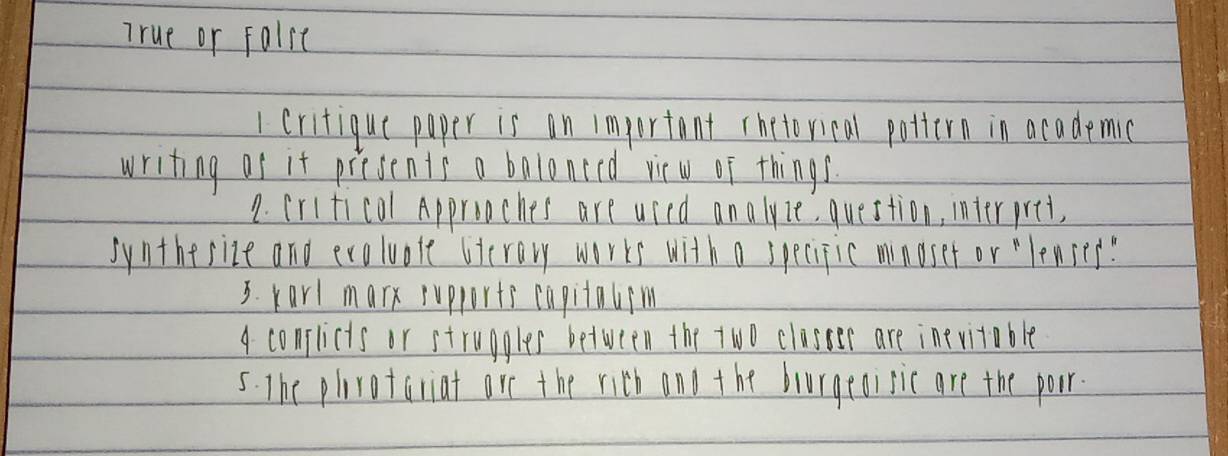 True or False
1. Critique paper is an important rhetorical pattern in academic
writing as it presents a balanced view of things.
2. Critical Approaches are used analyze, question, interpret,
synthesize and evaluate literary works with a specific mindset or "lenses".
3. Karl marx supports capitalism
4. conflicts or struggles between the two classes are inevitable.
5. The plorotariat are the rich and the bourgeoisie are the poor.